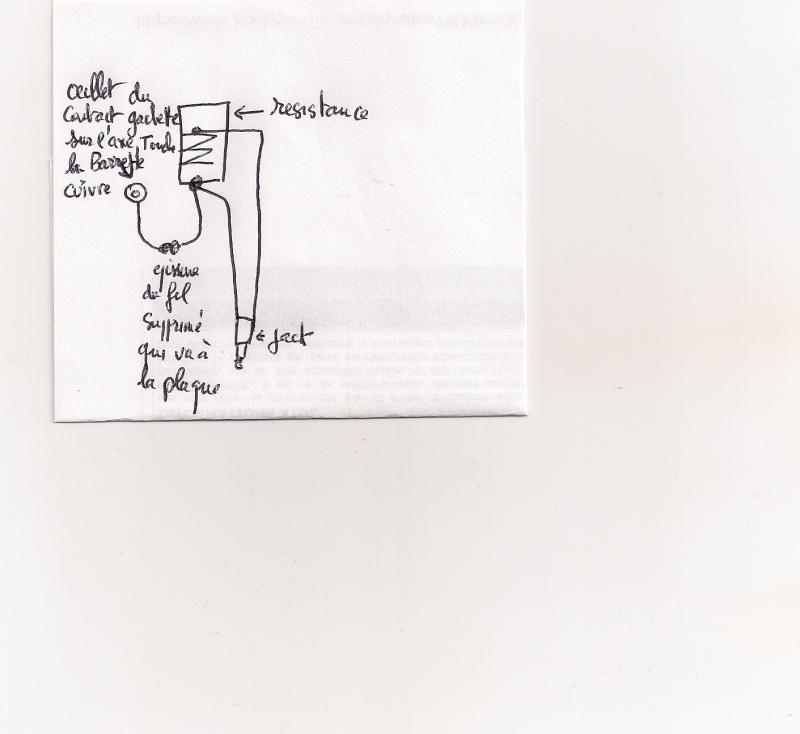 œillet du
contact gachette
sur l'axe, Touche
la Barrette
cuivre
← resistance
du fil
supprimé
qui va à
la plaque
← Jact